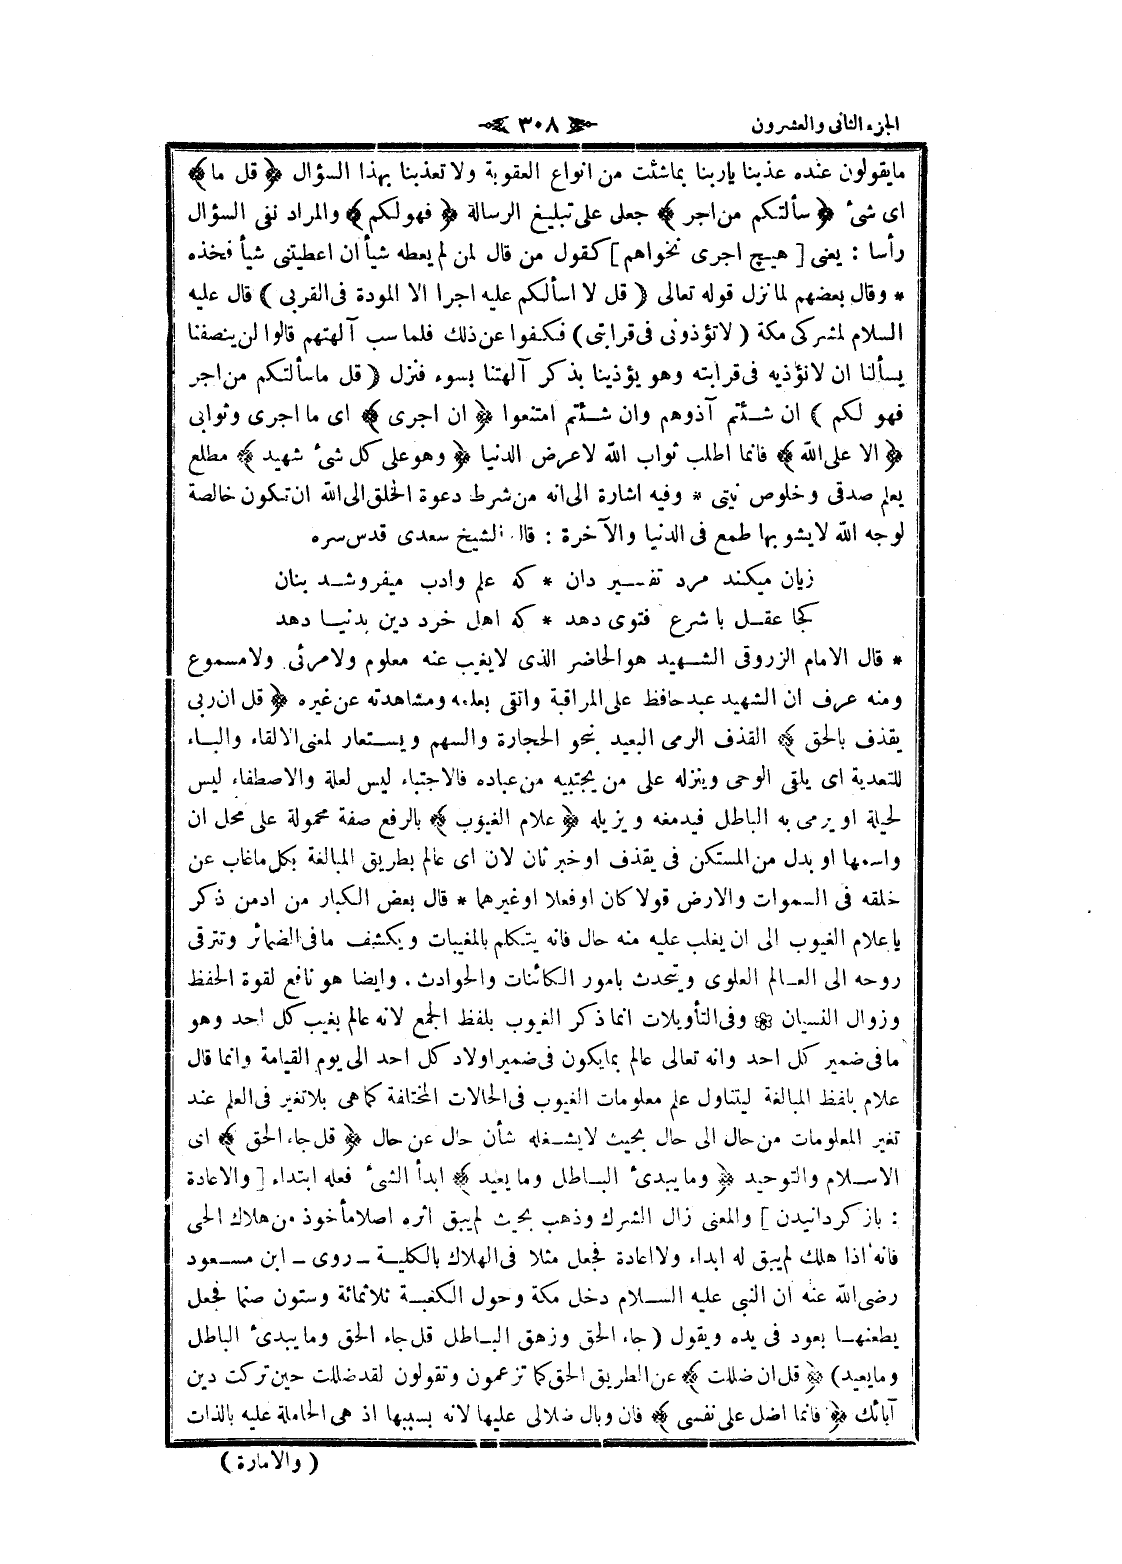 الجزء الثانى والعشرون
٣٠٨
مايقولون عنده عذبنا ياربنا بماشئت من انواع العقوبة ولا تعذبنا بهذا السؤال ﴿ قل ما ﴾
اى شئ ﴿ سألتكم من اجر ﴾ جعل على تبليغ الرسالة ﴿ فهولكم ﴾ والمراد نفى السؤال
رأسا : يعنى [ هيچ اجرى نخواهم ] كقول من قال لمن لم يعطه شيأ ان اعطيتنى شيأ فخذه
* وقال بعضهم لما نزل قوله تعالى ( قل لا اسألكم عليه اجرا الا المودة فى القربى ) قال عليه
السلام لمشركى مكة ( لاتؤذونى فى قرابتى ) فكفوا عن ذلك فلما سب آلهتهم قالوا لن ينصفنا
يسألنا ان لانؤذيه فى قرابته وهو يؤذينا بذكر آلهتنا بسوء فنزل ( قل ماسألتكم من اجر
فهو لكم ) ان شئتم آذوهم وان شئتم امتنعوا ﴿ ان اجرى ﴾ اى ما اجرى وثوابى
﴿ الا على الله ﴾ فانما اطلب ثواب الله لاعرض الدنيا ﴿ وهوعلى كل شئ شهيد ﴾ مطلع
يعلم صدقى وخلوص نيتى * وفيه اشارة الى انه من شرط دعوة الخلق الى الله ان تكون خالصة
لوجه الله لايشوبها طمع فى الدنيا والآخرة : قال الشيخ سعدى قدس سره
زيان ميكند مرد تفسير دان * كه علم وادب ميفروشد بنان
كجا عقل با شرع فتوى دهد * كه اهل خرد دين بدنيا دهد
* قال الامام الزروقى الشهيد هو الحاضر الذى لايغيب عنه معلوم ولامرئى ولامسموع
ومنه عرف ان الشهيد عبد حافظ على المراقبة واتقى بعلمه ومشاهدته عن غيره ﴿ قل ان ربى
يقذف بالحق ﴾ القذف الرمى البعيد بنحو الحجارة والسهم ويستعار لمعنى الالقاء والباء
للتعدية اى يلقى الوحى وينزله على من يجتبيه من عباده فالاجتباء ليس لعلة والاصطفاء ليس
لحيلة او يرمى به الباطل فيدمغه ويزيله ﴿ علام الغيوب ﴾ بالرفع صفة محمولة على محل ان
واسمها او بدل من المستكن فى يقذف اوخبر ثان لان اى عالم بطريق المبالغة بكل ماغاب عن
خلقه فى السموات والارض قولا كان اوفعلا اوغيرهما * قال بعض الكبار من ادمن ذكر
ياعلام الغيوب الى ان يغلب عليه منه حال فانه يتكلم بالمغيبات ويكشف مافى الضمائر وتترقى
روحه الى العالم العلوى ويتحدث بامور الكائنات والحوادث . وايضا هو نافع لقوة الحفظ
وزوال النسيان ❁ وفى التأويلات انما ذكر الغيوب بلفظ الجمع لانه عالم بغيب كل احد وهو
مافى ضمير كل احد وانه تعالى عالم بمايكون فى ضمير اولاد كل احد الى يوم القيامة وانما قال
علام بلفظ المبالغة ليتناول علم معلومات الغيوب فى الحالات المختلفة كماهى بلاتغير فى العلم عند
تغير المعلومات من حال الى حال بحيث لايشغله شأن حال عن حال ﴿ قل جاء الحق ﴾ اى
الاسلام والتوحيد ﴿ ومايبدئ الباطل ومايعيد ﴾ ابدأ الشئ فعله ابتداء [ والاعادة
: باز كردانيدن ] والمعنى زال الشرك وذهب بحيث لم يبق اثره اصلا مأخوذ من هلاك الحى
فانه اذا هلك لم يبق له ابداء ولااعادة فجعل مثلا فى الهلاك بالكلية ـ روى ـ ابن مسعود
رضى الله عنه ان النبي عليه السلام دخل مكة وحول الكعبة ثلاثمائة وستون صنما فجعل
يطعنها بعود فى يده ويقول ( جاء الحق وزهق الباطل قل جاء الحق ومايبدئ الباطل
ومايعيد ) ﴿ قل ان ضللت ﴾ عن الطريق الحق كما تزعمون وتقولون لقد ضللت حين تركت دين
آبائك ﴿ فانما اضل على نفسى ﴾ فان وبال ضلالى عليها لانه بسببها اذ هى الحاملة عليه بالذات
( والامارة )